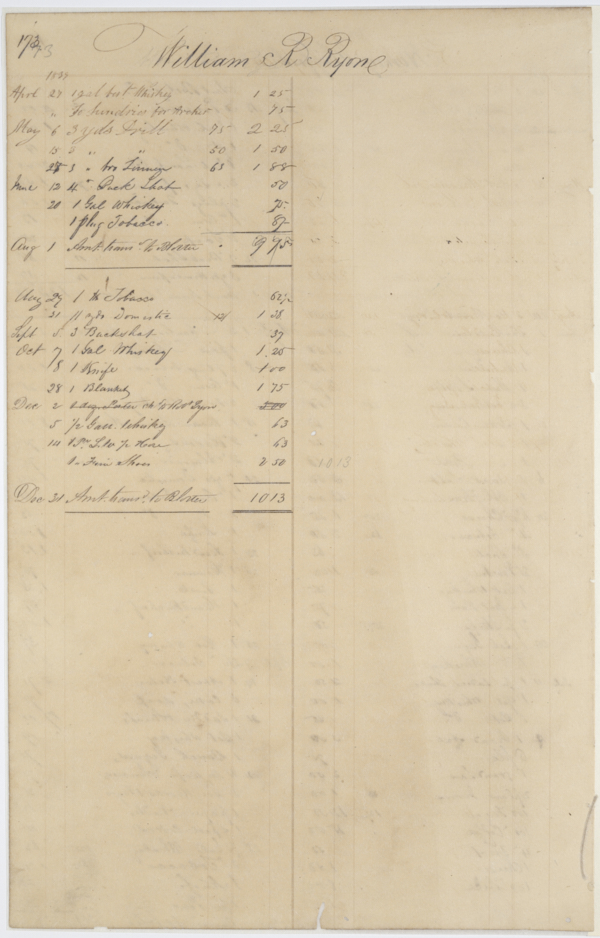 173
William R Ryone
April 27 1 gal best Whiskey 1 25
" To Sundries for Archer 75
May 6 3 yds Drill 75 2 25
15 3 " " 50 1 50
25 3 " bro Linnen 63 1 88
June 12 4 " Buck Shot 50
20 1 Gal Whiskey 75
1 plug Tobacco 87
Aug 1 Amt trans to Blotter 9 75
Aug 29 1 lb Tobacco 62½
31 yds Domestic 1 28
Sept 5 3 Buckshot 37
Oct 7 1 Gal Whiskey 1 25
8 1 Knife 1 00
28 1 Blanket 1 75
Dec 2
5 ½ Gall Whisky 63
63
Shoes 2 50 1013
Dec 31 Amt trans to Blotter 1013